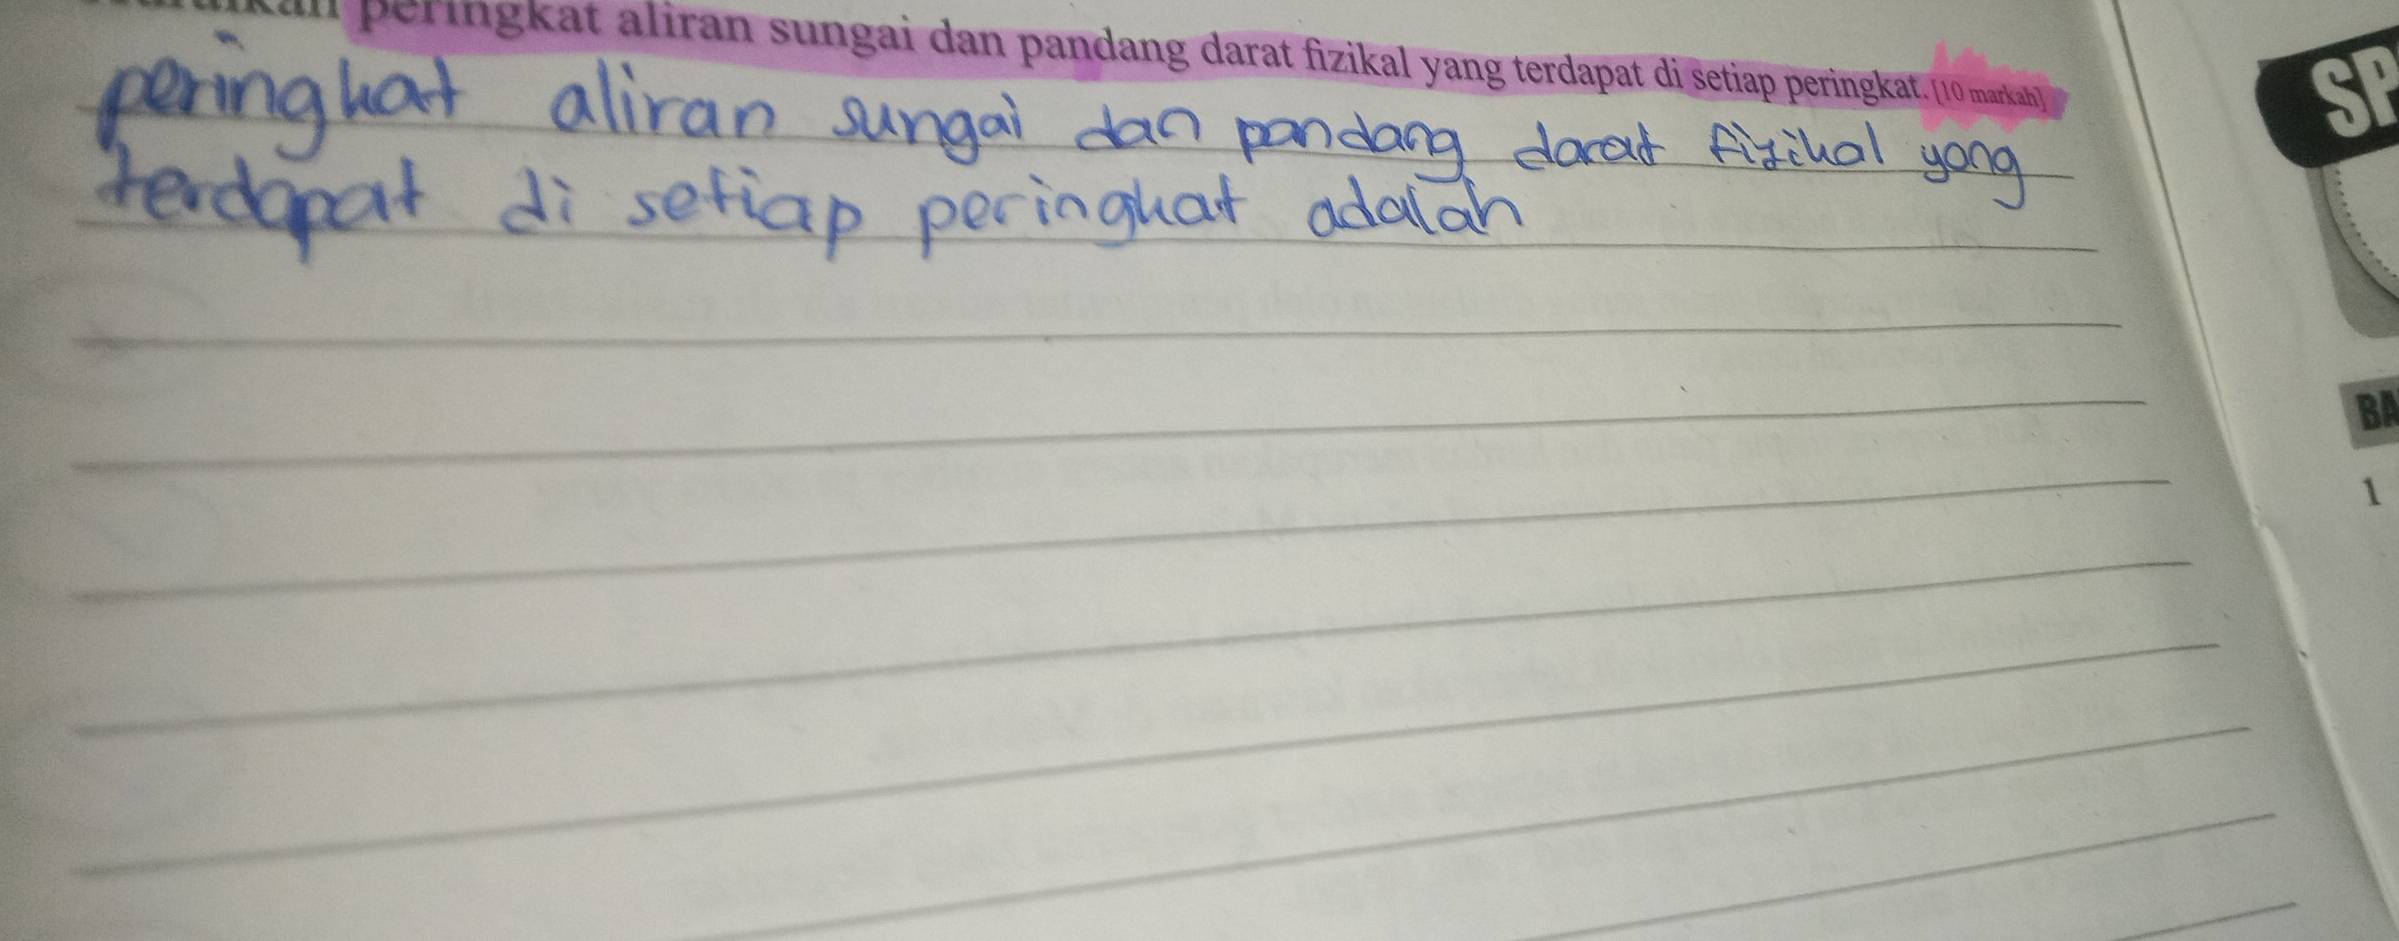 peringkat aliran sungai dan pandang darat fizikal yang terdapat di setiap peringkat. [10 markah]
peringkat aliran sungai dan pandang darat fizikal yang
terdapat di setiap peringkat adalah
SP
BA
1